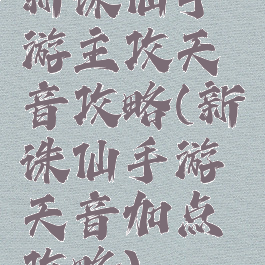 新诛仙手
游主攻天
音攻略(新
诛仙手游
天音加点
攻略)